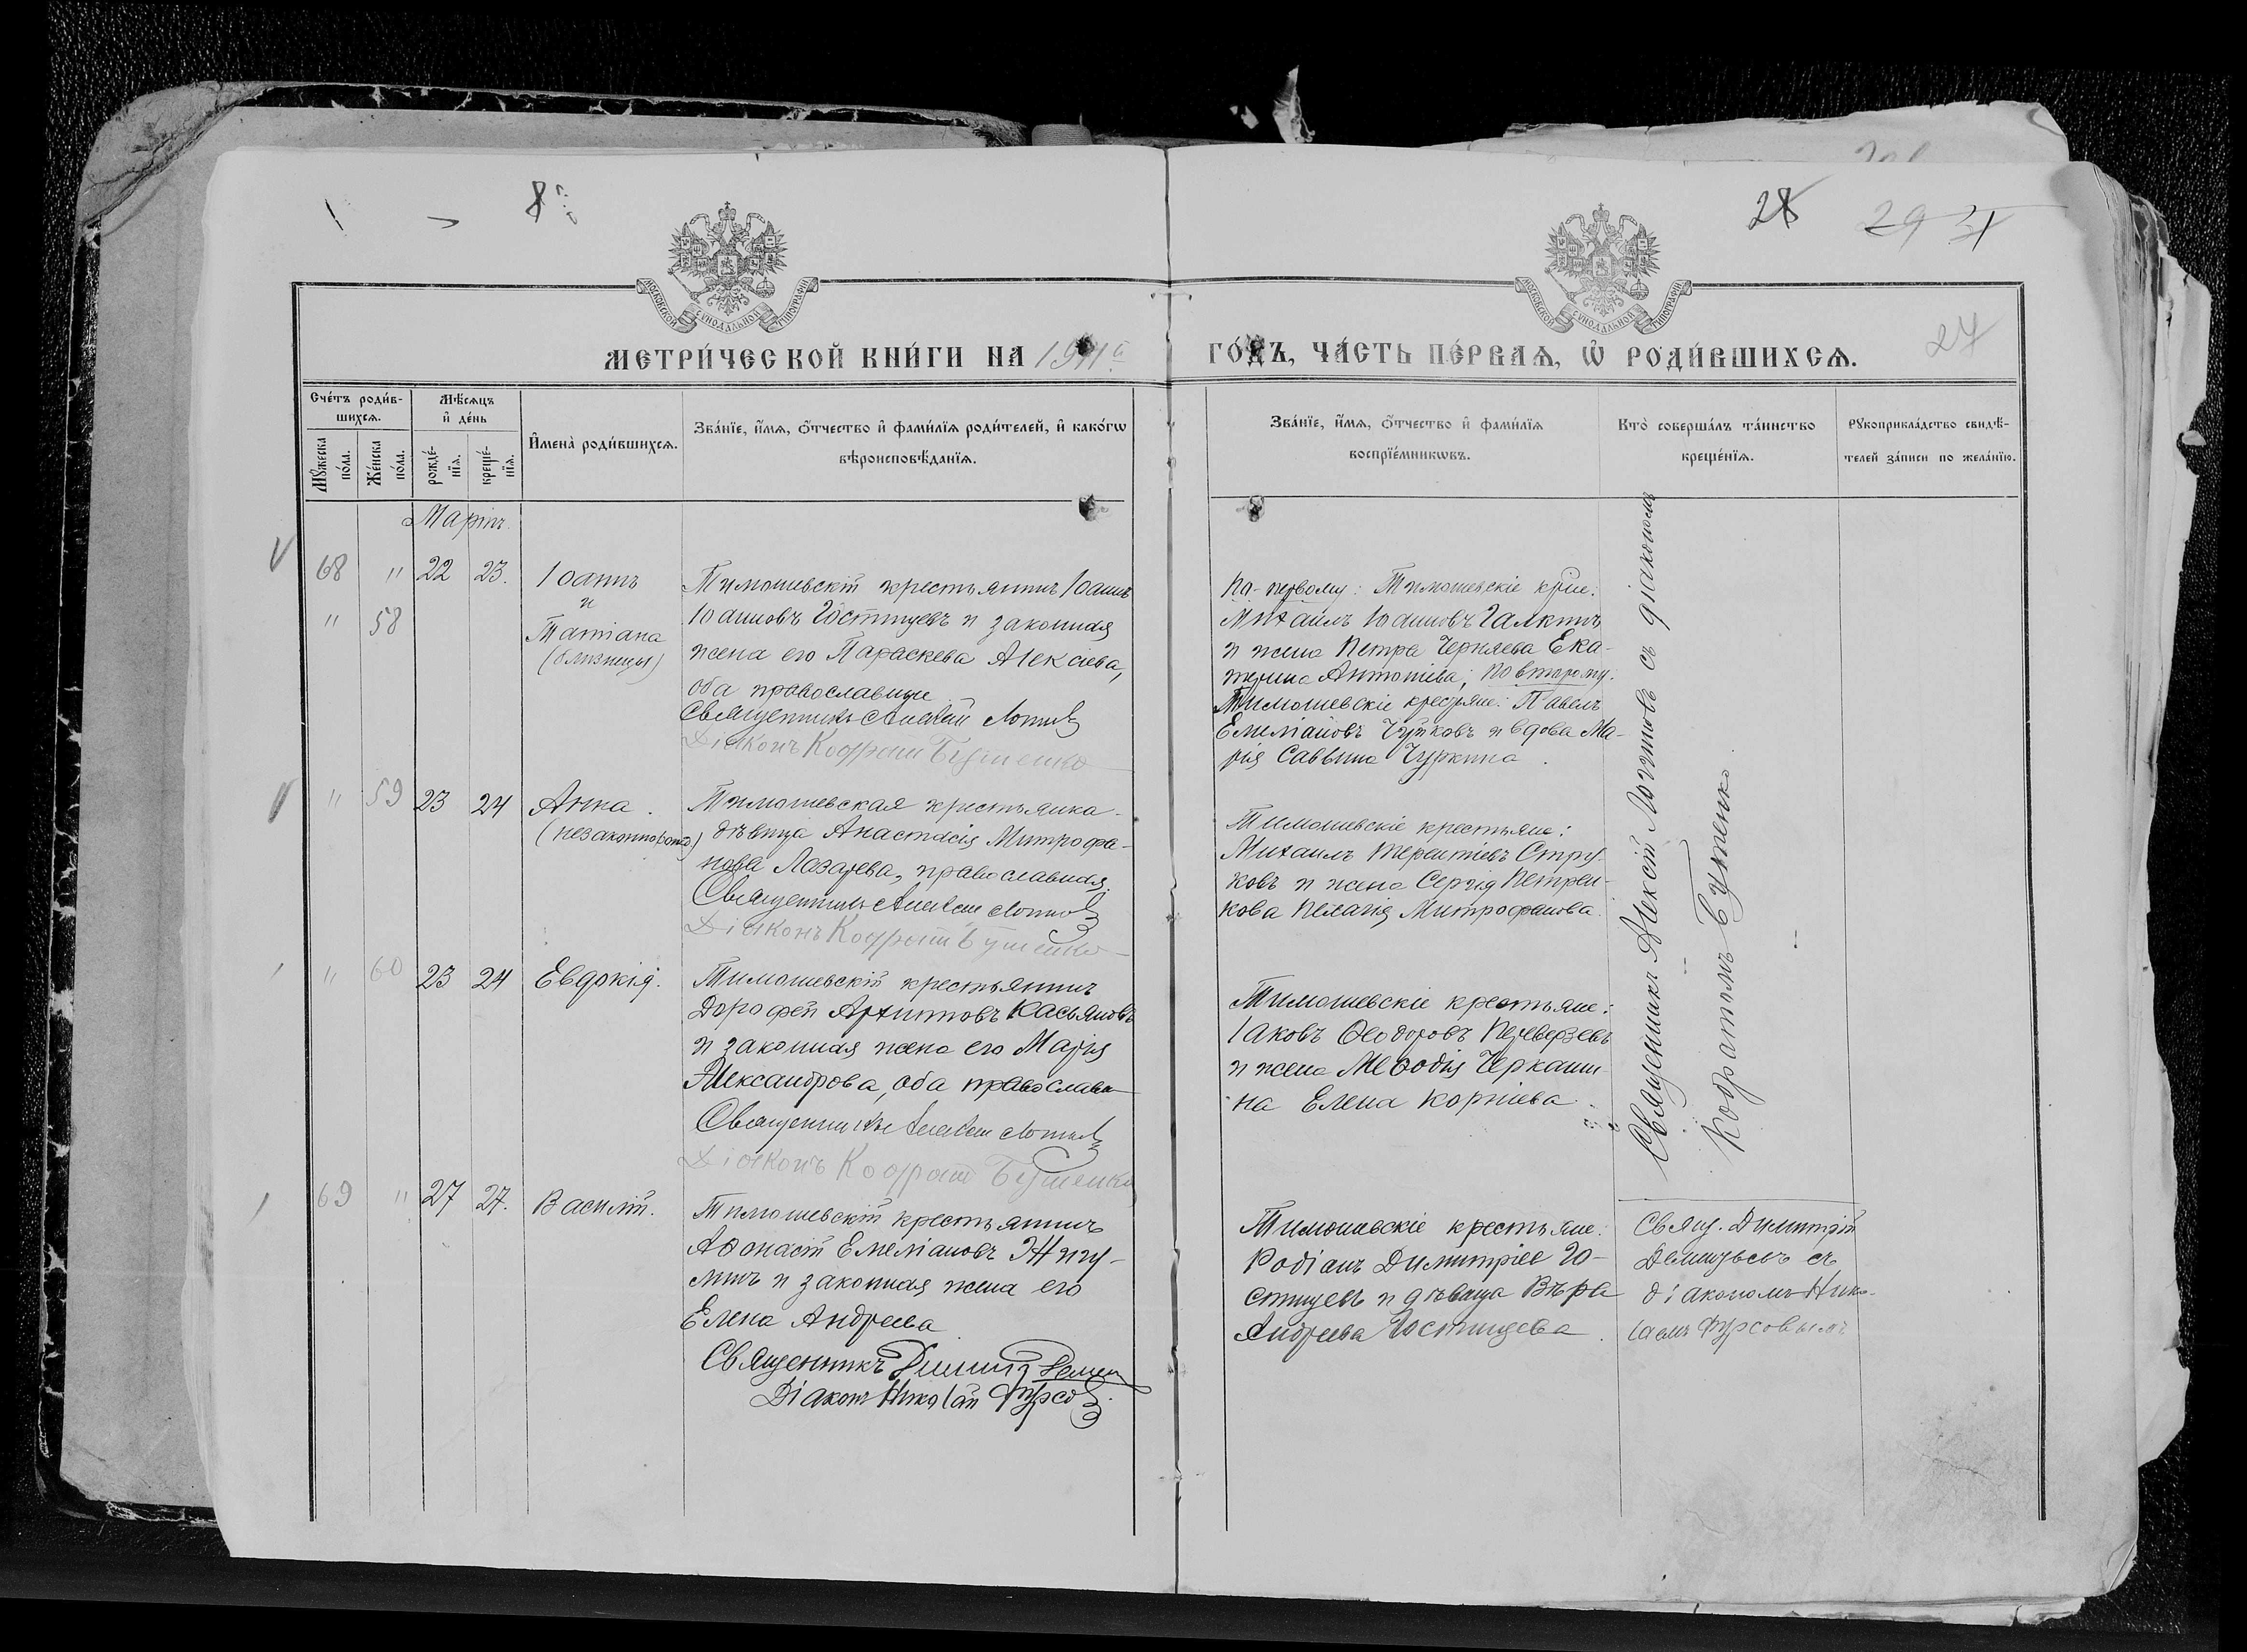 8
28
29
МОСКОВСКОЙ СѴНОДАЛЬНОЙ ТИПОГРАФІИ
МОСКОВСКОЙ СѴНОДАЛЬНОЙ ТИПОГРАФІИ
МЕТРИ́ЧЕСКОЙ КНИ́ГИ НА 1911й
ГО́ДЪ, ЧА́СТЬ ПЕ́РВАѦ, Ѡ҆ РОДИ́ВШИХСѦ.
27
Сче́тъ роди́в-
шихсѧ.
Мѣ́сѧцъ
и҆ де́нь
Мꙋ́жеска
по́ла.
Же́нска
по́ла.
рожде́-
нїѧ.
креще́-
нїѧ.
И҆мена̀ роди́вшихсѧ.
Зва́нїе, и҆́мѧ, ѻ҆́тчество и҆ фами́лїѧ роди́телей, и҆ како́гѡ
вѣроисповѣ́данїѧ.
Зва́нїе, и҆́мѧ, ѻ҆́тчество и҆ фами́лїѧ
воспрїе́мникѡвъ.
Кто̀ соверша́лъ та́инство
креще́нїѧ.
Рꙋкоприкла́дство свидѣ́-
телей за́писи по жела́нїю.
Мартъ.
68 " 22 23. Іоаннъ
и
" 58 Татіана
(близнецы)
Тимошевскій крестьянинъ Іоаннъ
Іоанновъ Гостищевъ и законная
жена его Параскева Алексіева,
оба православные
Священникъ Алексій Логинов
Діаконъ Кодратъ Бутенко
По-первому: Тимошевскіе крие:
Михаилъ Іоанновъ Галкинъ
и жена Петра Черняева Ека-
терина Антоніева; по второму:
Тимошевскіе крестьяне: Павелъ
Емиліановъ Чуйковъ и вдова Ма-
рія Саввина Чуркина.
" 59 23 24 Анна.
(незаконнорожд)
Тимошевская крестьянка-
дѣвица Анастасія Митрофа-
нова Лазарева, православная.
Священникъ Алексій Логинов
Діаконъ Кодратъ Бутенко
Тимошевскіе крестьяне:
Михаилъ Терентіевъ Стру-
ковъ и жена Сергія Петрен-
кова Пелагія Митрофанова.
" 60 23 24 Евдокія.
Тимошевскій крестьянинъ
Дорофей Архиповъ Касьяновъ
и законная жена его Марія
Александрова, оба православн
Священникъ Алексій Логинов
Діаконъ Кодратъ Бутенко
Тимошевскіе крестьяне:
Іаковъ Ѳеодоровъ Переверзевъ
и жена Меѳодія Черкаши-
на Елена Корніева.
Священникъ Алексій Логиновъ съ діакономъ
Кодратомъ Бутенко
69 " 27 27. Василій.
Тимошевскій крестьянинъ
Аѳонасій Емеліановъ Жигу-
линъ и законная жена его
Елена Андреева
Священникъ
Діаконъ Николай Фурсов
Тимошевскіе крестьяне:
Родіанъ Димитріев Го-
стищевъ и дѣвица Вѣра
Андреева Гостищева.
Свящ. Димитрій
съ
діакономъ Нико-
лаемъ Фурсовымъ